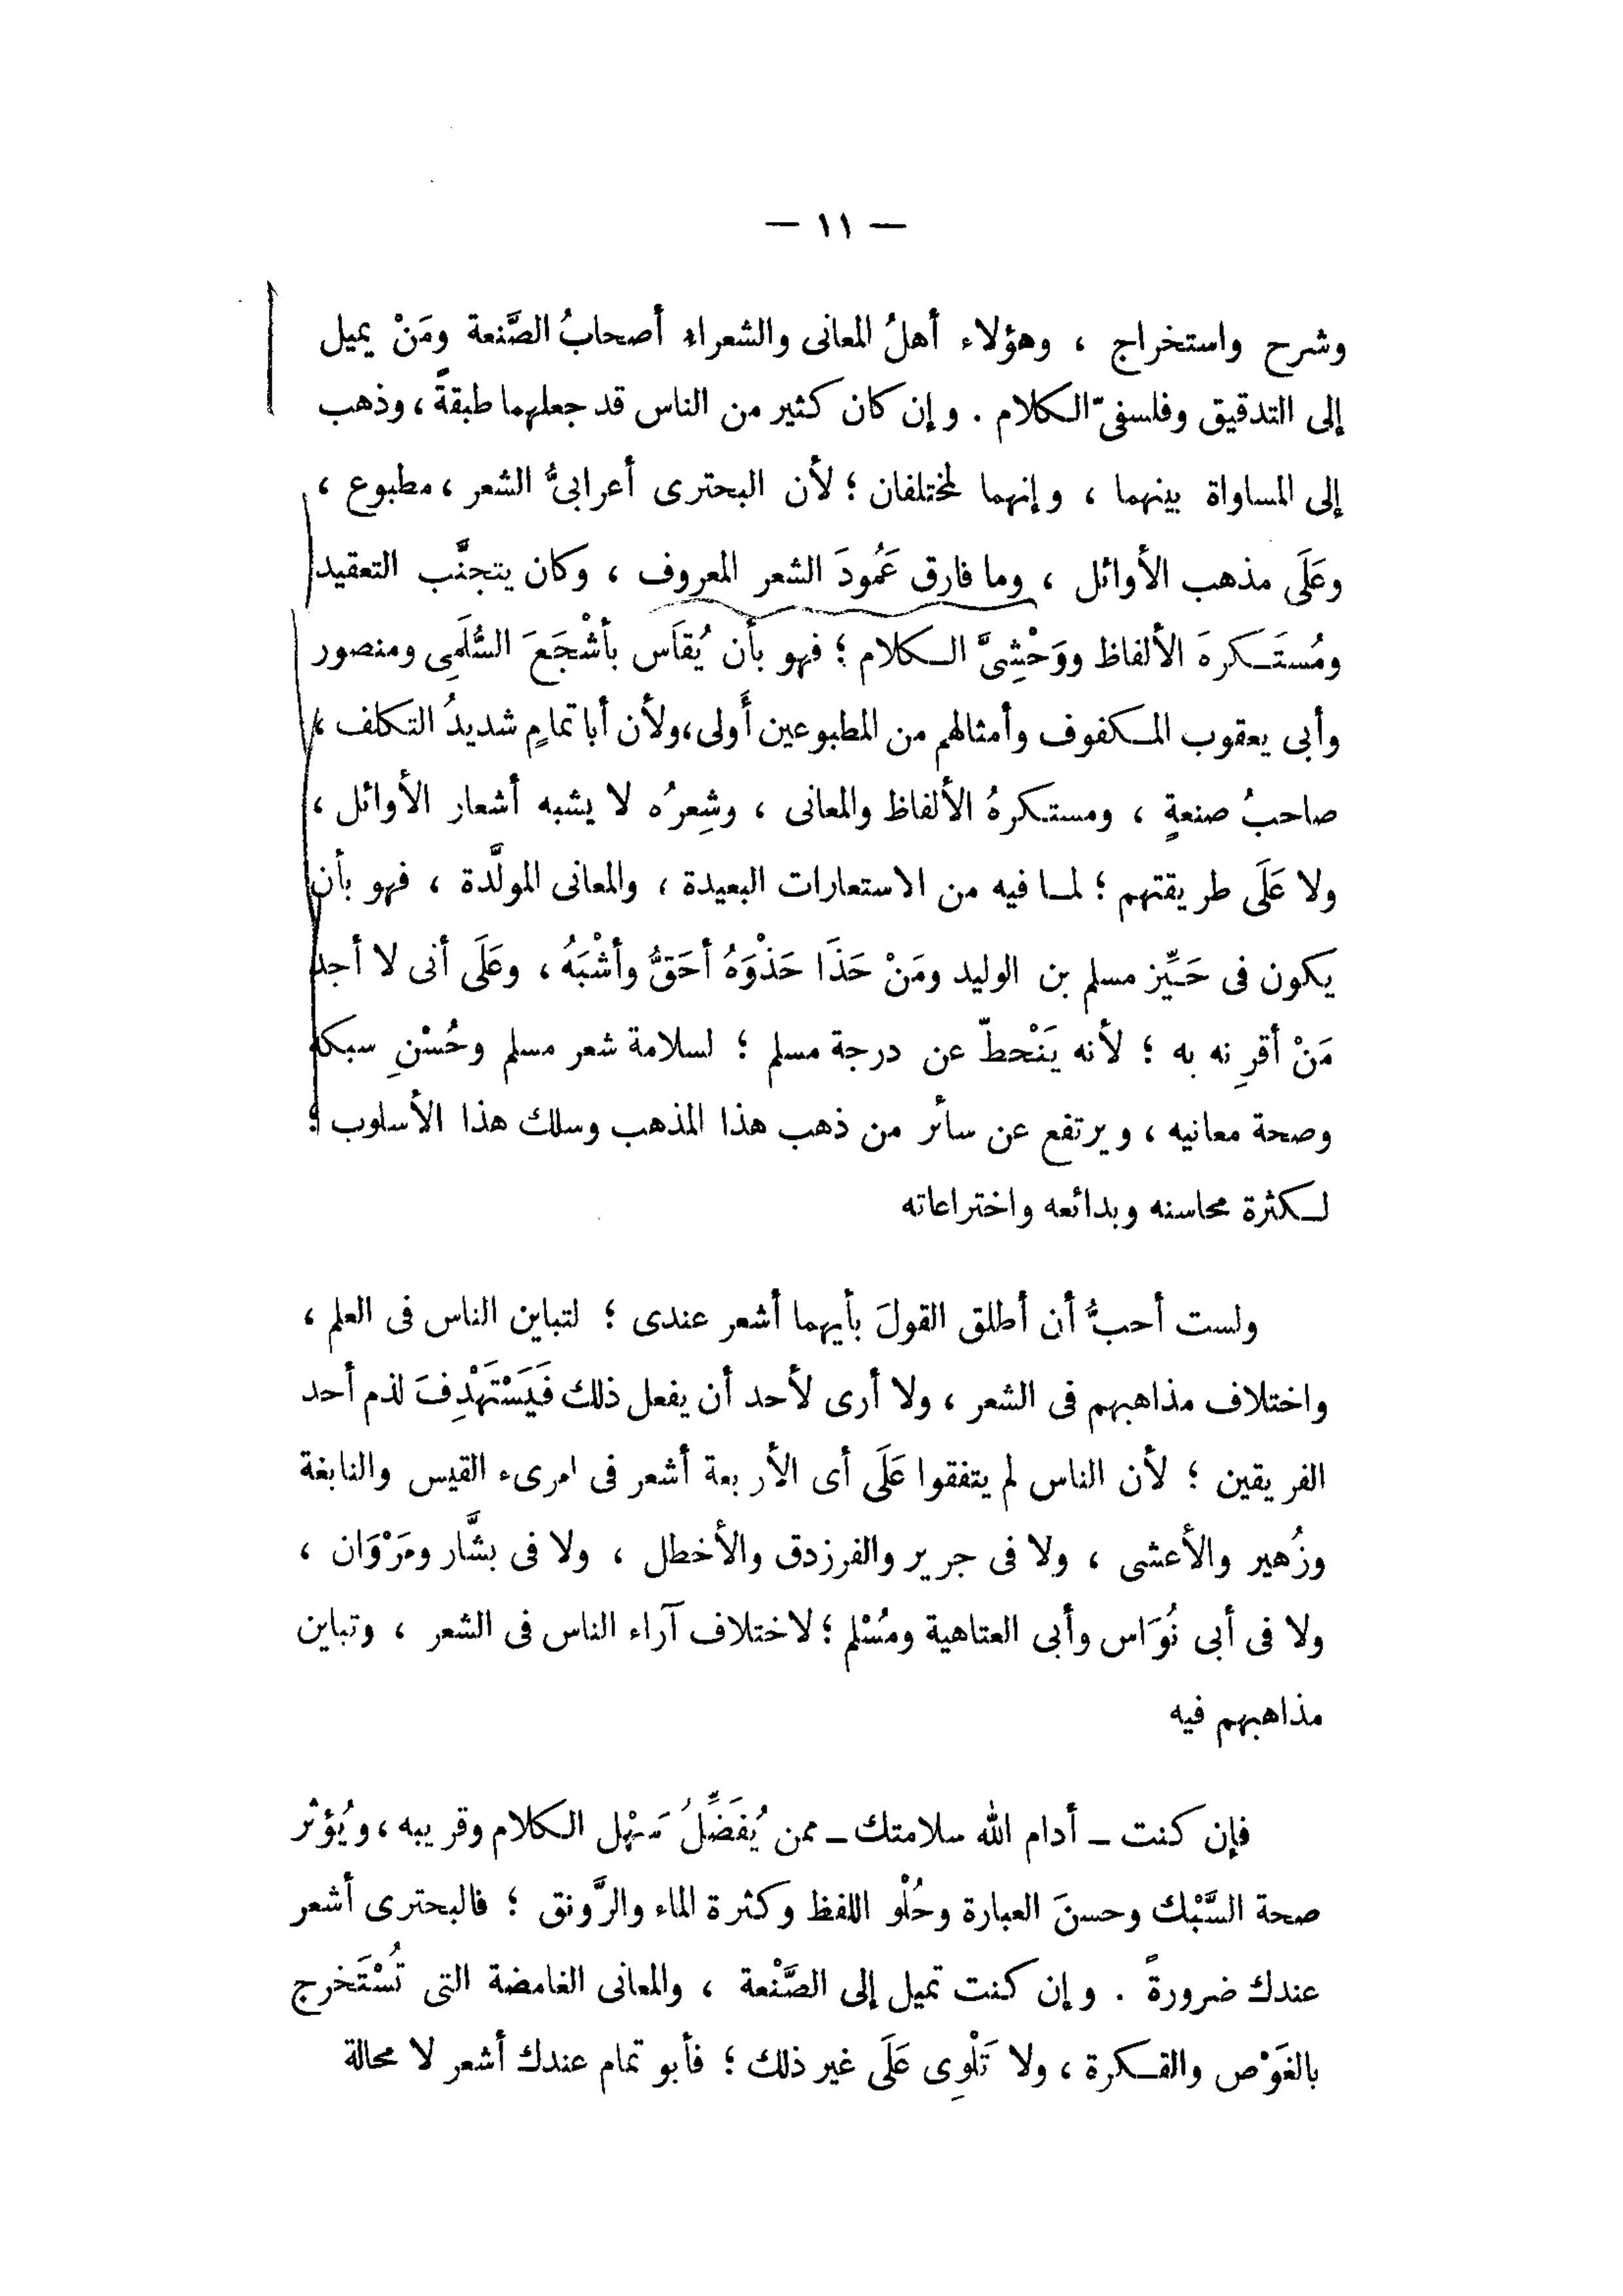 — ١١ —
وشرح واستخراج ، وهؤلاء أهلُ المعانى والشعراء أصحابُ الصَّنعة ومَنْ يميل
إلى التدقيق وفلسفىّ الكلام . وإن كان كثير من الناس قد جعلهما طبقةً ، وذهب
إلى المساواة بينهما ، وإنهما لمختلفان ؛ لأن البحترى أعرابىُّ الشعر ، مطبوع ،
وعَلَى مذهب الأوائل ، وما فارق عَمُودَ الشعر المعروف ، وكان يتجنَّب التعقيد
ومُستَكرهَ الألفاظ ووَحْشِىَّ الكلام ؛ فهو بأن يُقاَس بأشْجَعَ السُّلَمِى ومنصور
وأبى يعقوب المكفوف وأمثالهم من المطبوعين أَولى، ولأن أبا تمامٍ شديدُ التكلف ،
صاحبُ صنعةٍ ، ومستكرهُ الألفاظ والمعانى ، وشِعرُه لا يشبه أشعار الأوائل ،
ولا عَلَى طريقتهم ؛ لما فيه من الاستعارات البعيدة ، والمعانى المولَّدة ، فهو بأن
يكون فى حَيِّز مسلم بن الوليد ومَنْ حَذَا حَذْوَهُ أحَقُّ وأشْبَهُ ، وعَلَى أنى لا أجد
مَنْ أقرِنه به ؛ لأنه يَنْحطّ عن درجة مسلم ؛ لسلامة شعر مسلم وحُسْنِ سبكه
وصحة معانيه ، ويرتفع عن سائر من ذهب هذا المذهب وسلك هذا الأسلوب ؛
لكثرة محاسنه وبدائعه واختراعاته
ولست أحبُّ أن أطلق القولَ بأيهما أشعر عندى ؛ لتباين الناس فى العلم ،
واختلاف مذاهبهم فى الشعر ، ولا أرى لأحد أن يفعل ذلك فَيَسْتَهْدِفَ لذم أحد
الفريقين ؛ لأن الناس لم يتفقوا عَلَى أى الأربعة أشعر فى امرىء القيس والنابغة
وزُهير والأعشى ، ولا فى جرير والفرزدق والأخطل ، ولا فى بشَّار ومَرْوَان ،
ولا فى أبى نُوَاس وأبى العتاهية ومُسْلم ؛ لاختلاف آراء الناس فى الشعر ، وتباين
مذاهبهم فيه
فإن كنت ــ أدام الله سلامتك ــ ممن يُفَضِّلُ سَهْل الكلام وقريبه ، ويُؤثر
صحة السَّبْك وحسنَ العبارة وحُلْو اللفظ وكثرة الماء والرَّونق ؛ فالبحترى أشعر
عندك ضرورةً . وإن كنت تميل إلى الصَّنْعة ، والمعانى الغامضة التى تُسْتَخرج
بالغَوْص والفكرة ، ولا تَلْوِى عَلَى غير ذلك ؛ فأبو تمام عندك أشعر لا محالة